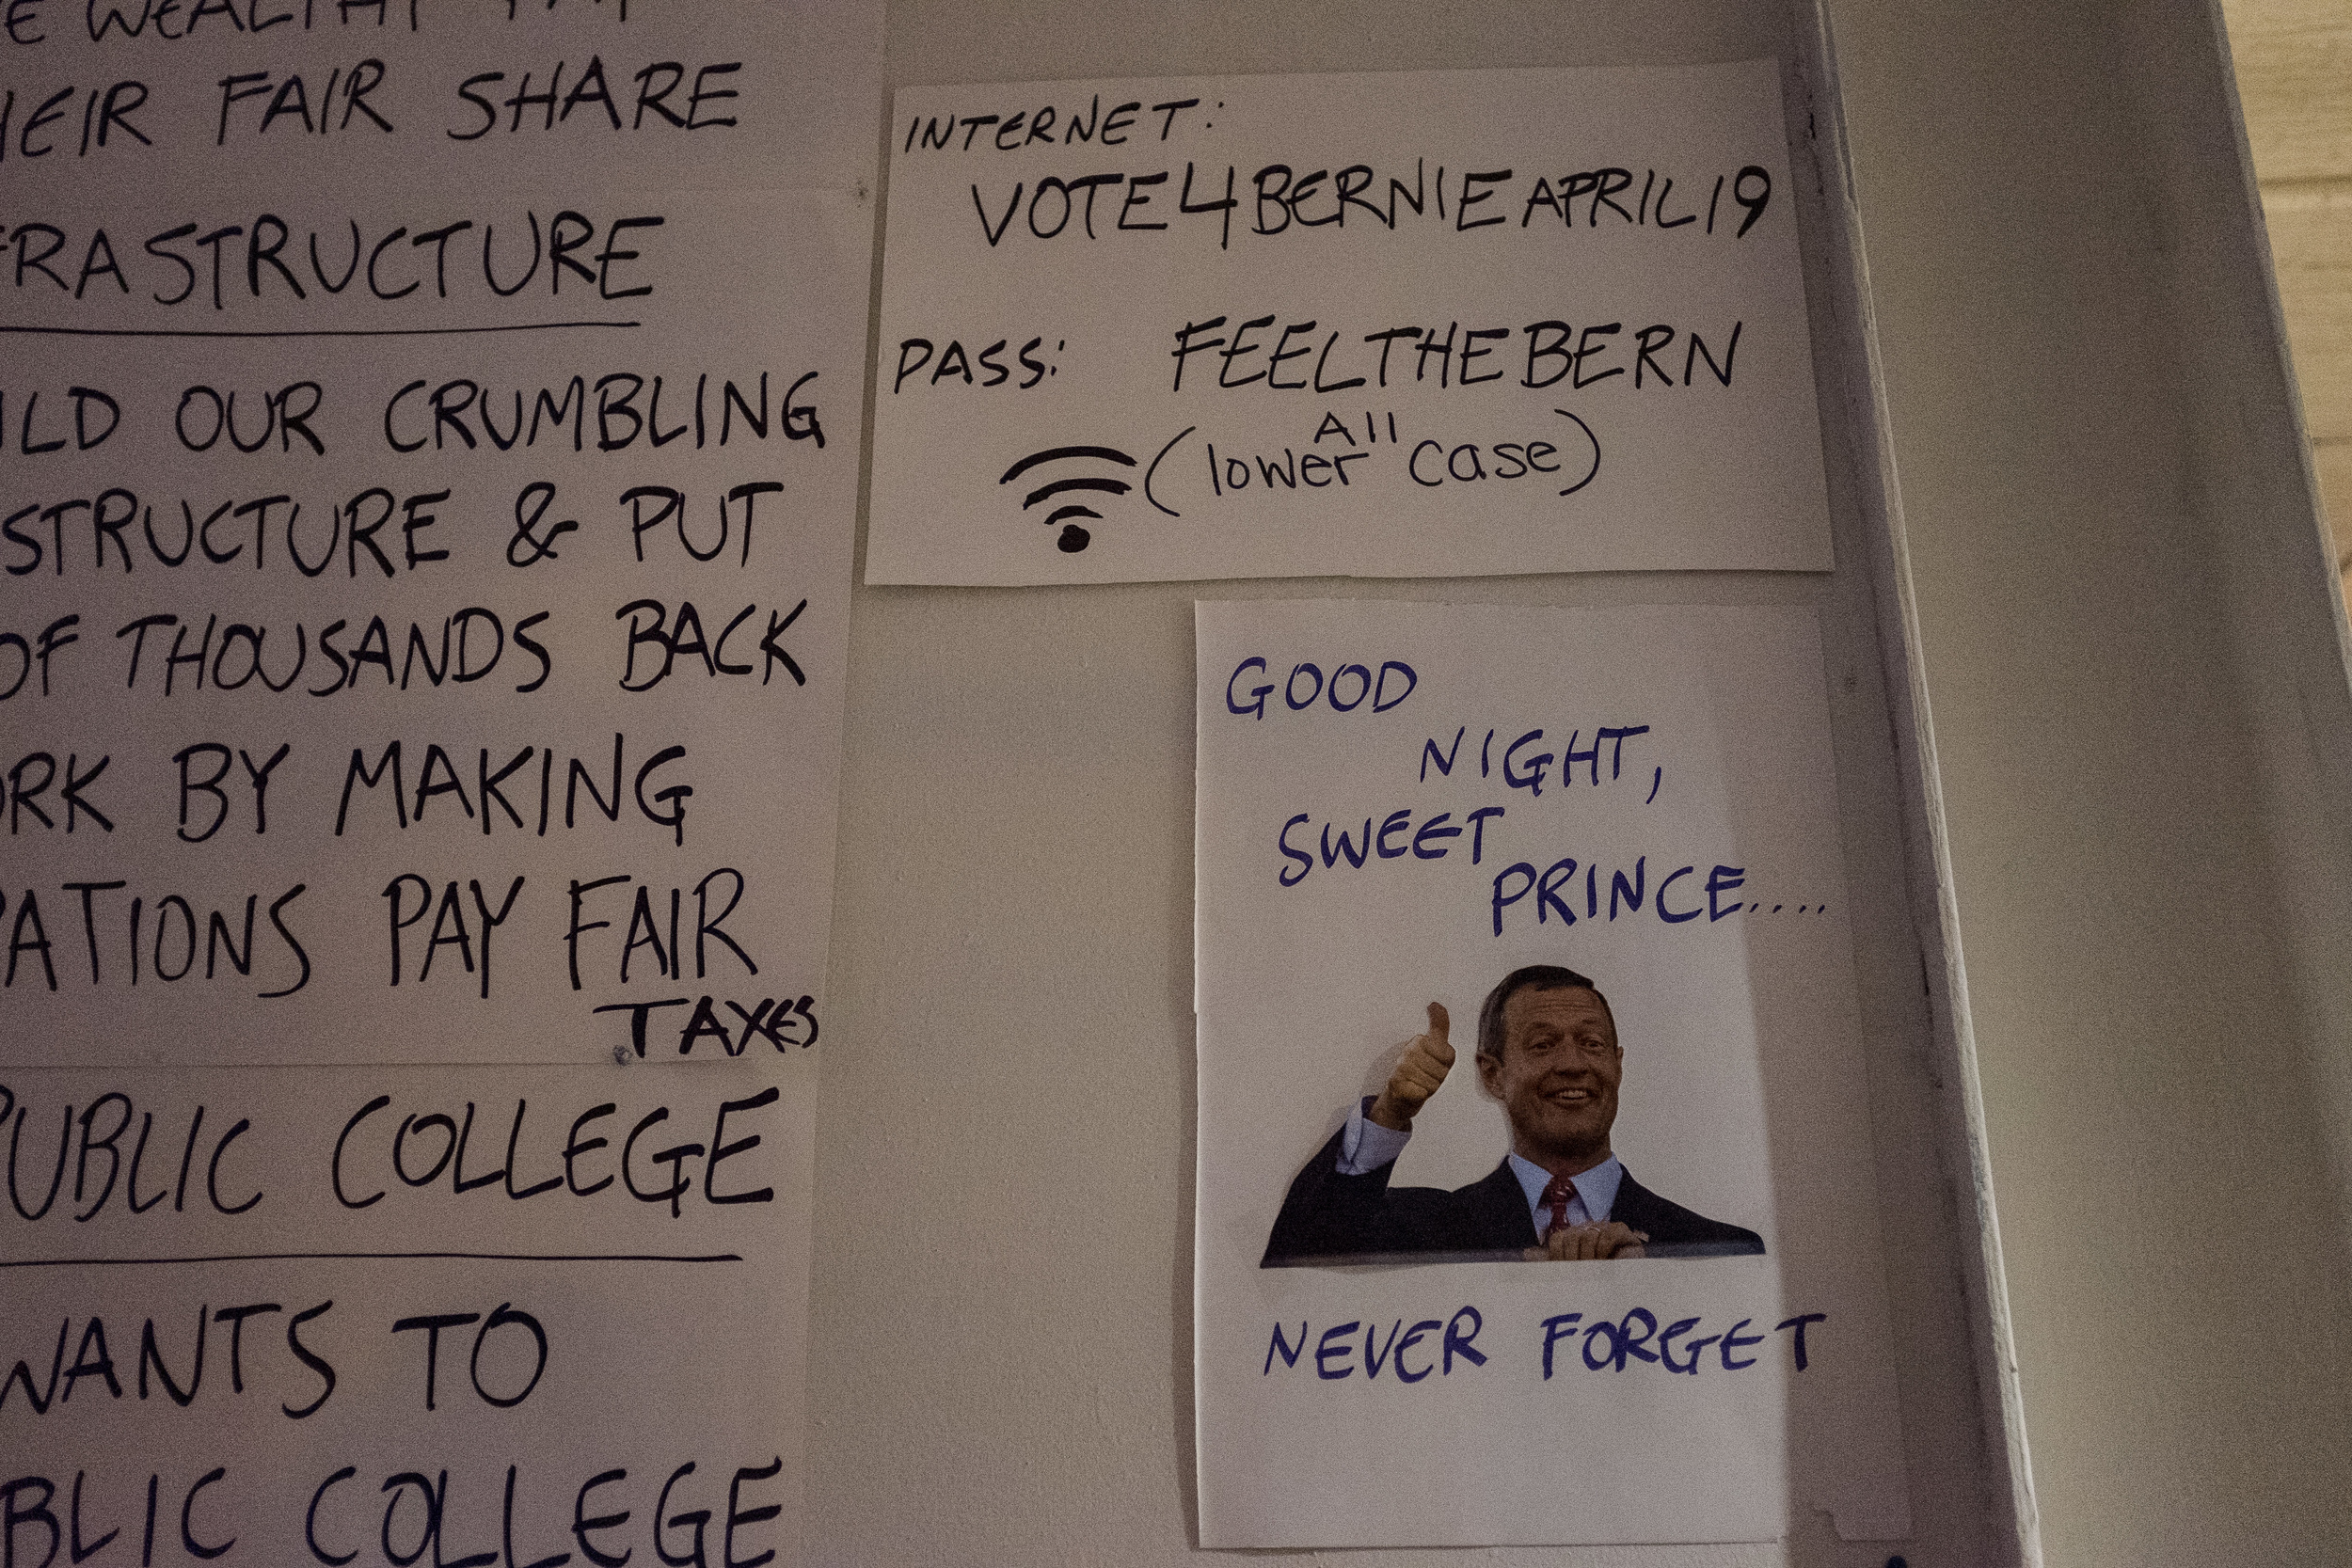 WEALTHY PAY
FAIR SHARE
RASTRUCTURE
ILD OUR CRUMBLING
STRUCTURE & PUT
OF THOUSANDS BACK
ORK BY MAKING
RATIONS PAY FAIR
TAXES
PUBLIC COLLEGE
WANTS TO
BLIC COLLEGE
INTERNET:
VOTE4BERNIEAPRIL19
PASS: FEELTHEBERN
(All lower case)
GOOD
NIGHT,
SWEET
PRINCE....
NEVER FORGET